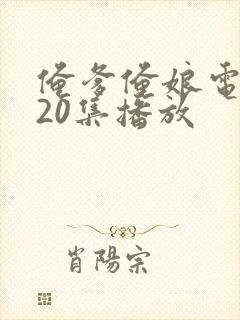 俺爹俺娘電
20集播放
肖陽宗